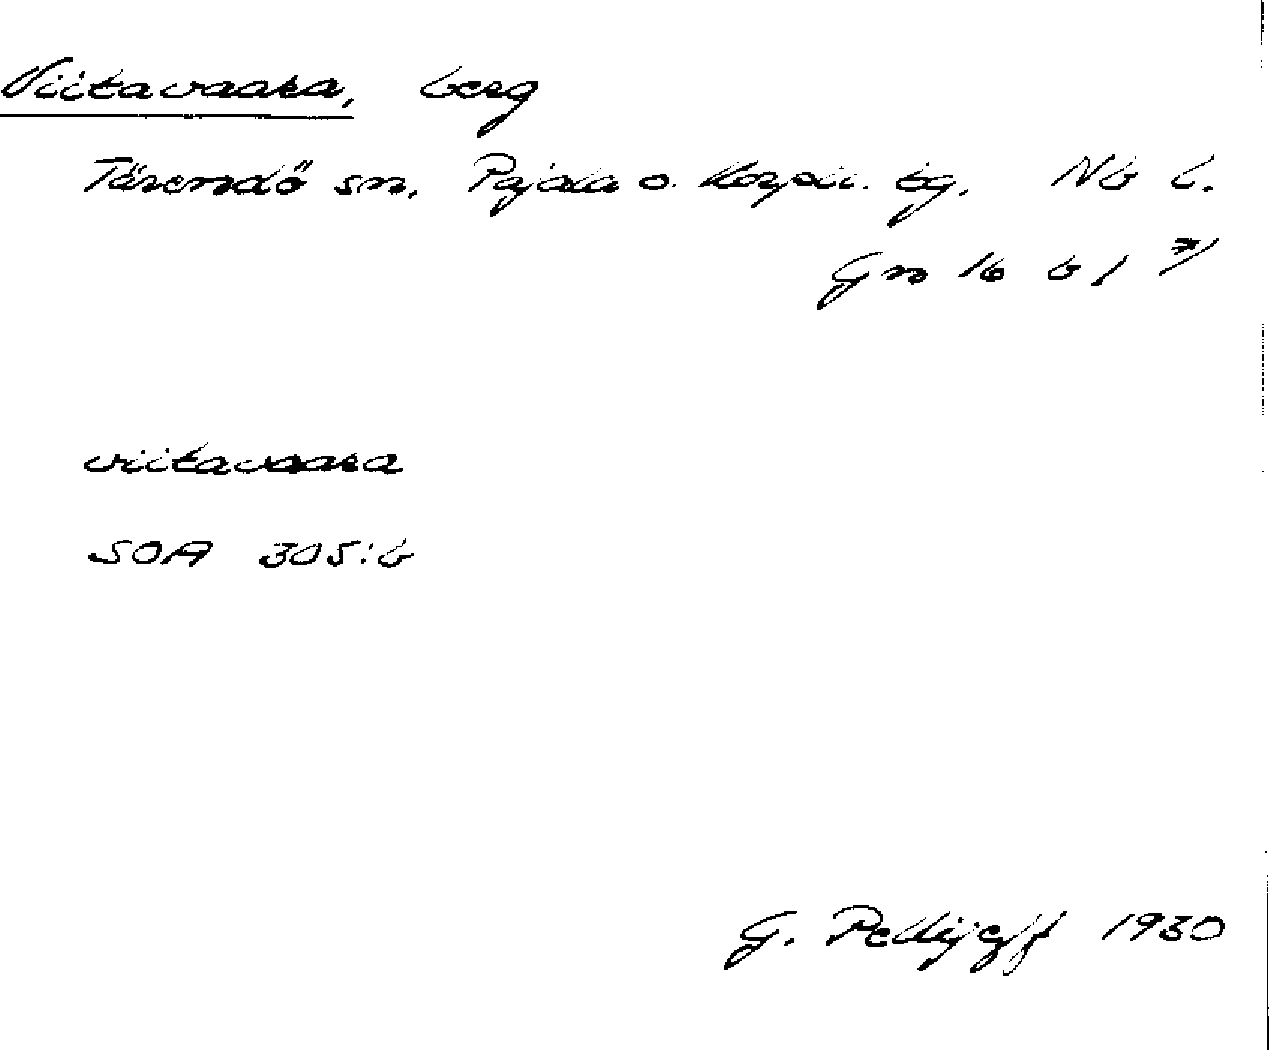 Viitavaara, berg
Tärendö sn. Pajala o. Korpil. tg. Nb l.
Gn 16 b 1
viitavaara
SOA 305:6
G. Pellijeff 1930